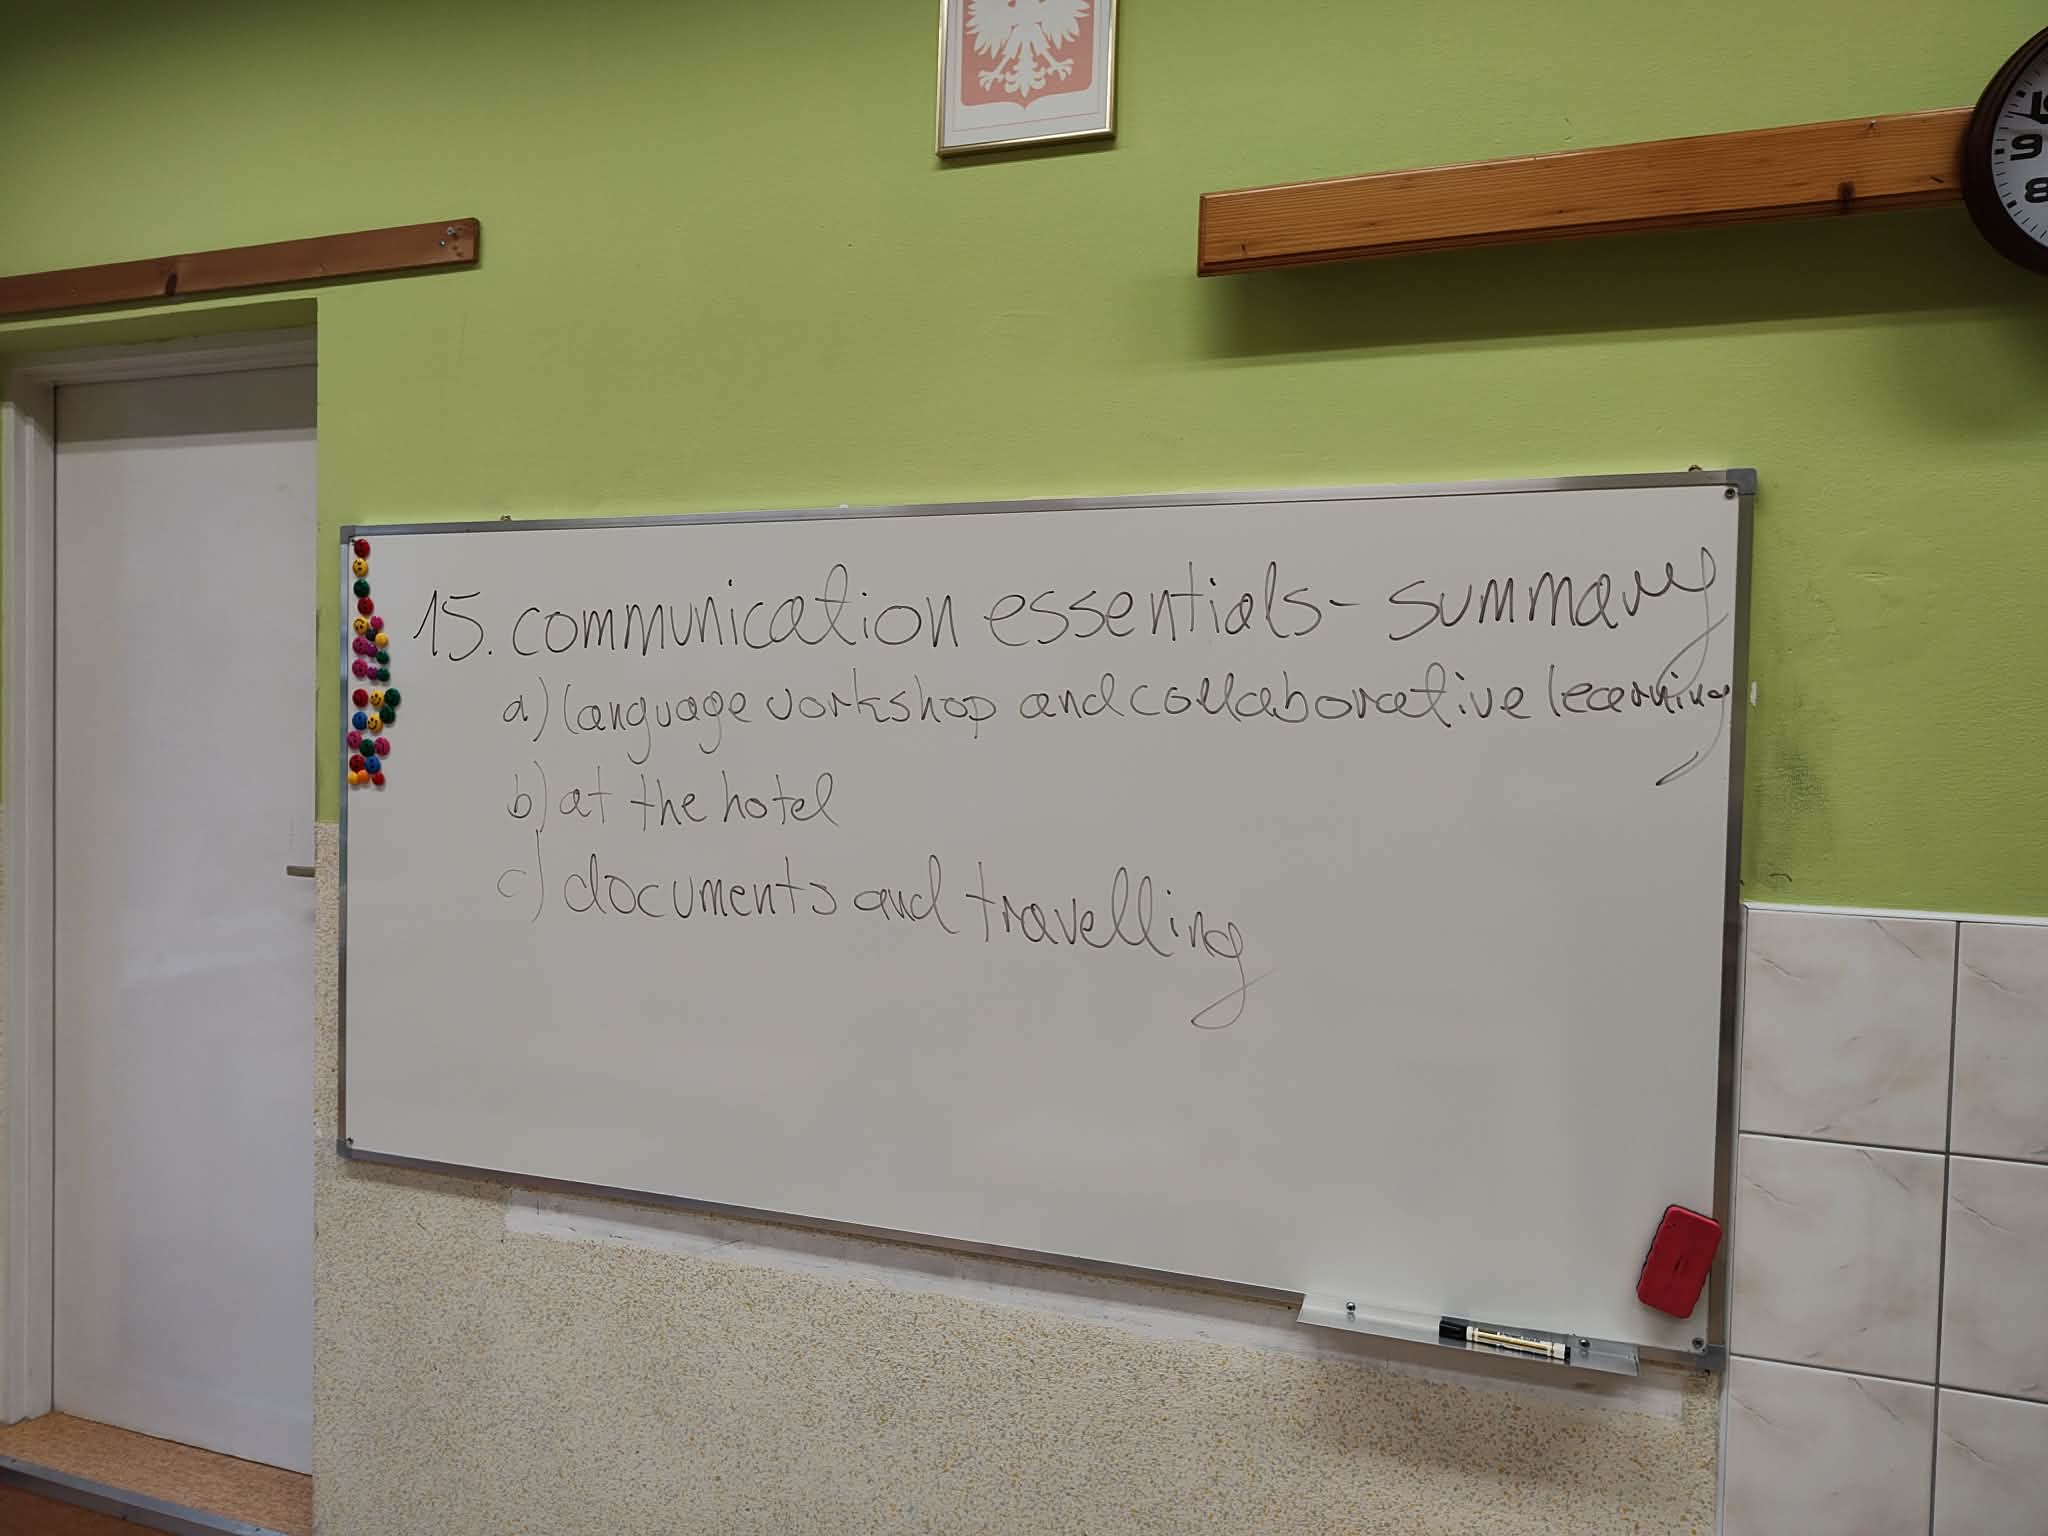 15. communication essentials - summary
a) language workshop and collaborative learning
b) at the hotel
c) documents and travelling
9
8